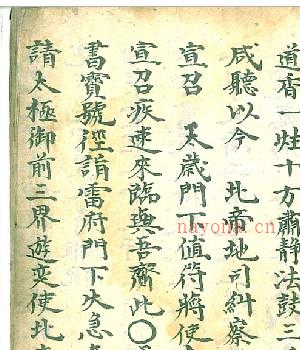 道香一炷十方肅静法鼓三
咸聽以今 北帝地司糾察
宣召 太歲門下値符將使
宣召疾速來臨與吾齎此〇
書寳號徑詣雷府門下火急
請太極御前三界遊奕使北
nayona.cn